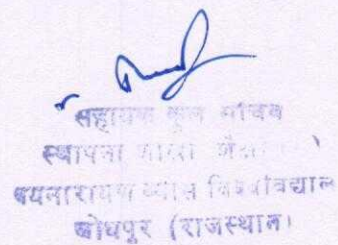 सहायक कुल सचिव
स्थापना शाखा
जयनारायण व्यास विश्वविद्यालय
जोधपुर (राजस्थान)